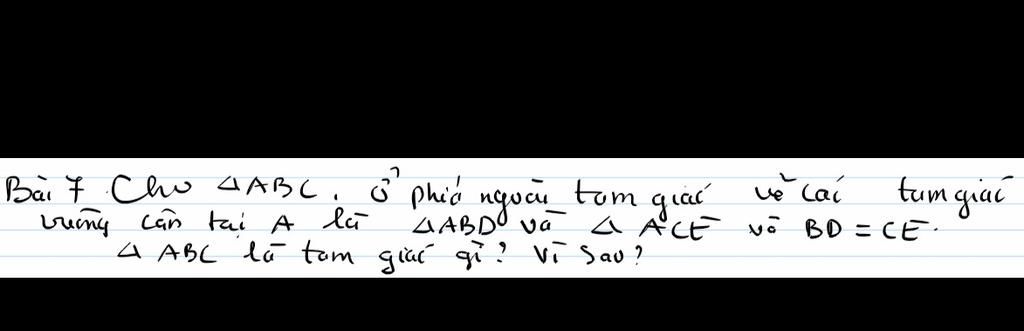 Bài 7 Cho △ABC. Ở phiá ngoài tam giác vẽ các tam giác
vuông cân tại A là △ABD và △ ACE và BD = CE.
△ ABC là tam giác gì? Vì sao?